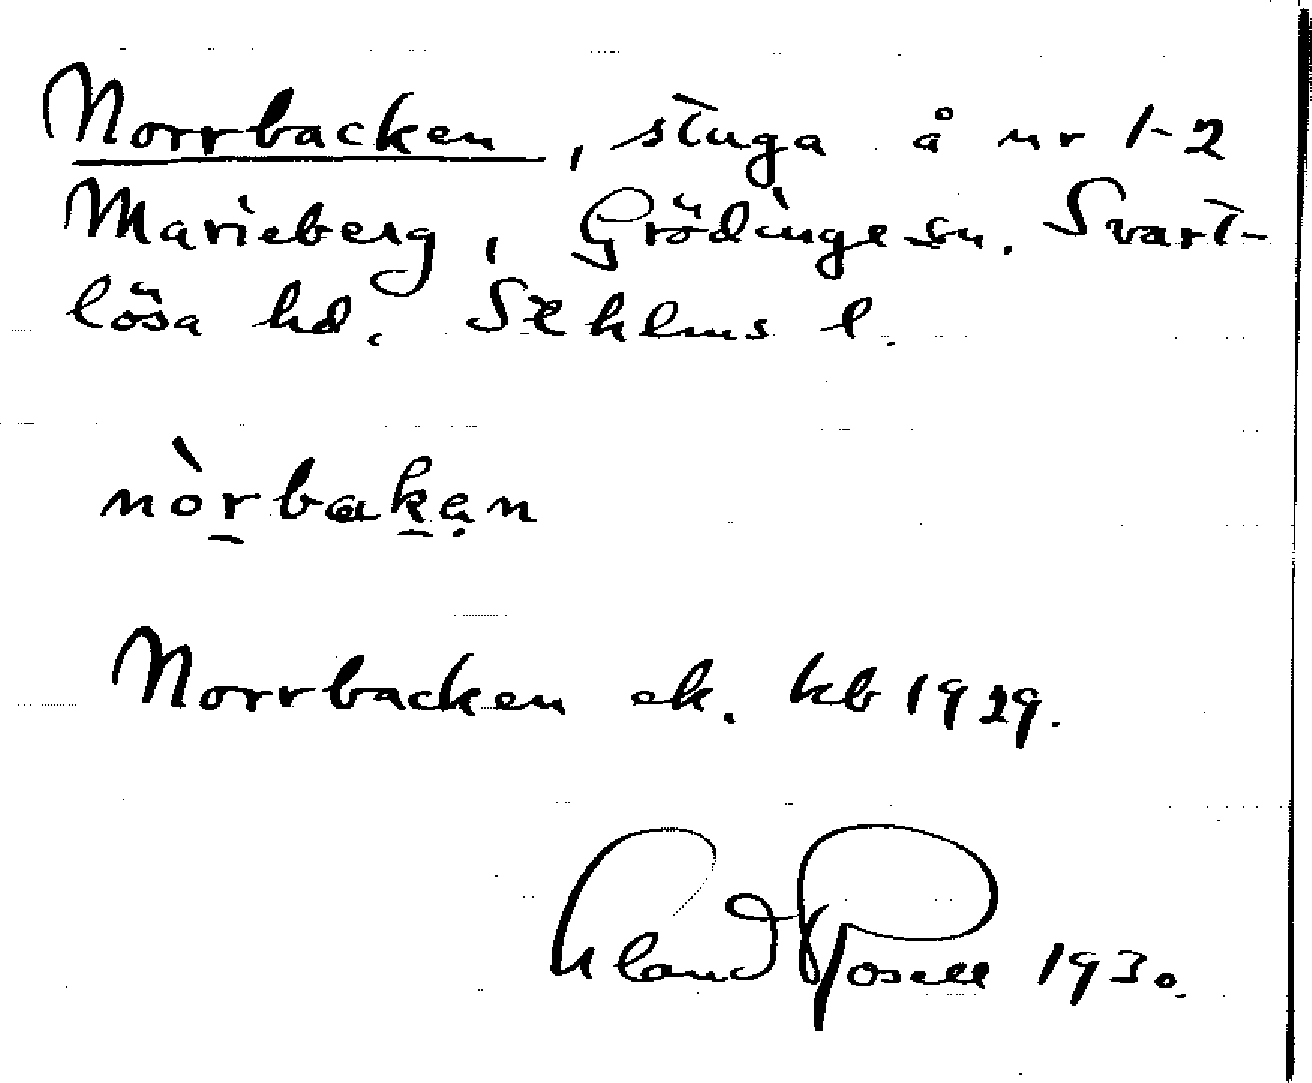 Norrbacken, stuga å nr 1-2
Marieberg, Grödinge sn. Svart-
lösa hd. Sthlms l.
nòrbakan
Norrbacken ek. kb 1929.
Erland Rosell 1930.